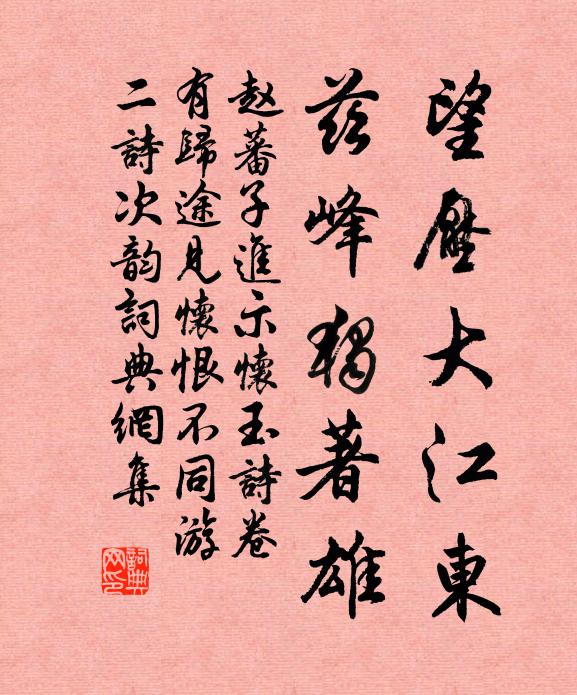 望壓大江東
茲峰獨著雄
赵蕃子進示懷玉詩卷
有歸途見懷恨不同游
二詩次韵詞典網集
詞典网印